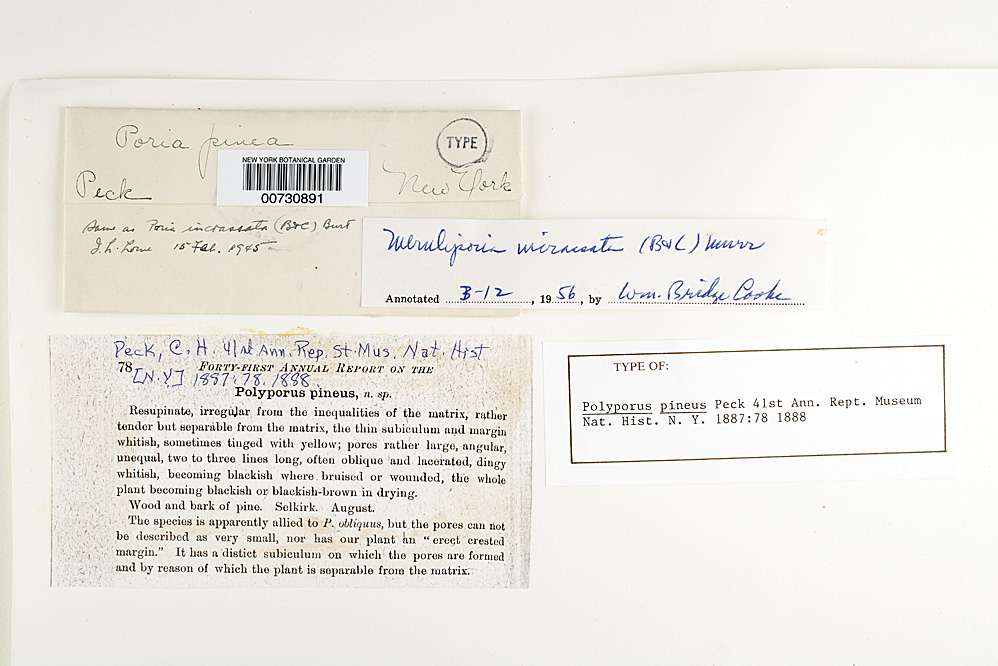 Poria pinea
TYPE
NEW YORK BOTANICAL GARDEN
00730891
Peck
New York
Same as Poria incrassata (B&C) Burt
J. L. Lowe 15 Feb. 1945
Meruliporia incrassata (B&C) Murr
Annotated 3-12, 1956, by Wm. Bridge Cooke
Peck, C. H. 41st Ann. Rep. St. Mus. Nat. Hist
78 FORTY-FIRST ANNUAL REPORT ON THE
[N.Y.] 1887:78. 1888
Polyporus pineus, n. sp.
Resupinate, irregular from the inequalities of the matrix, rather
tender but separable from the matrix, the thin subiculum and margin
whitish, sometimes tinged with yellow; pores rather large, angular,
unequal, two to three lines long, often oblique and lacerated, dingy
whitish, becoming blackish where bruised or wounded, the whole
plant becoming blackish or blackish-brown in drying.
Wood and bark of pine. Selkirk. August.
The species is apparently allied to P. obliquus, but the pores can not
be described as very small, nor has our plant an "erect crested
margin." It has a distict subiculum on which the pores are formed
and by reason of which the plant is separable from the matrix.
TYPE OF:
Polyporus pineus Peck 41st Ann. Rept. Museum
Nat. Hist. N. Y. 1887:78 1888